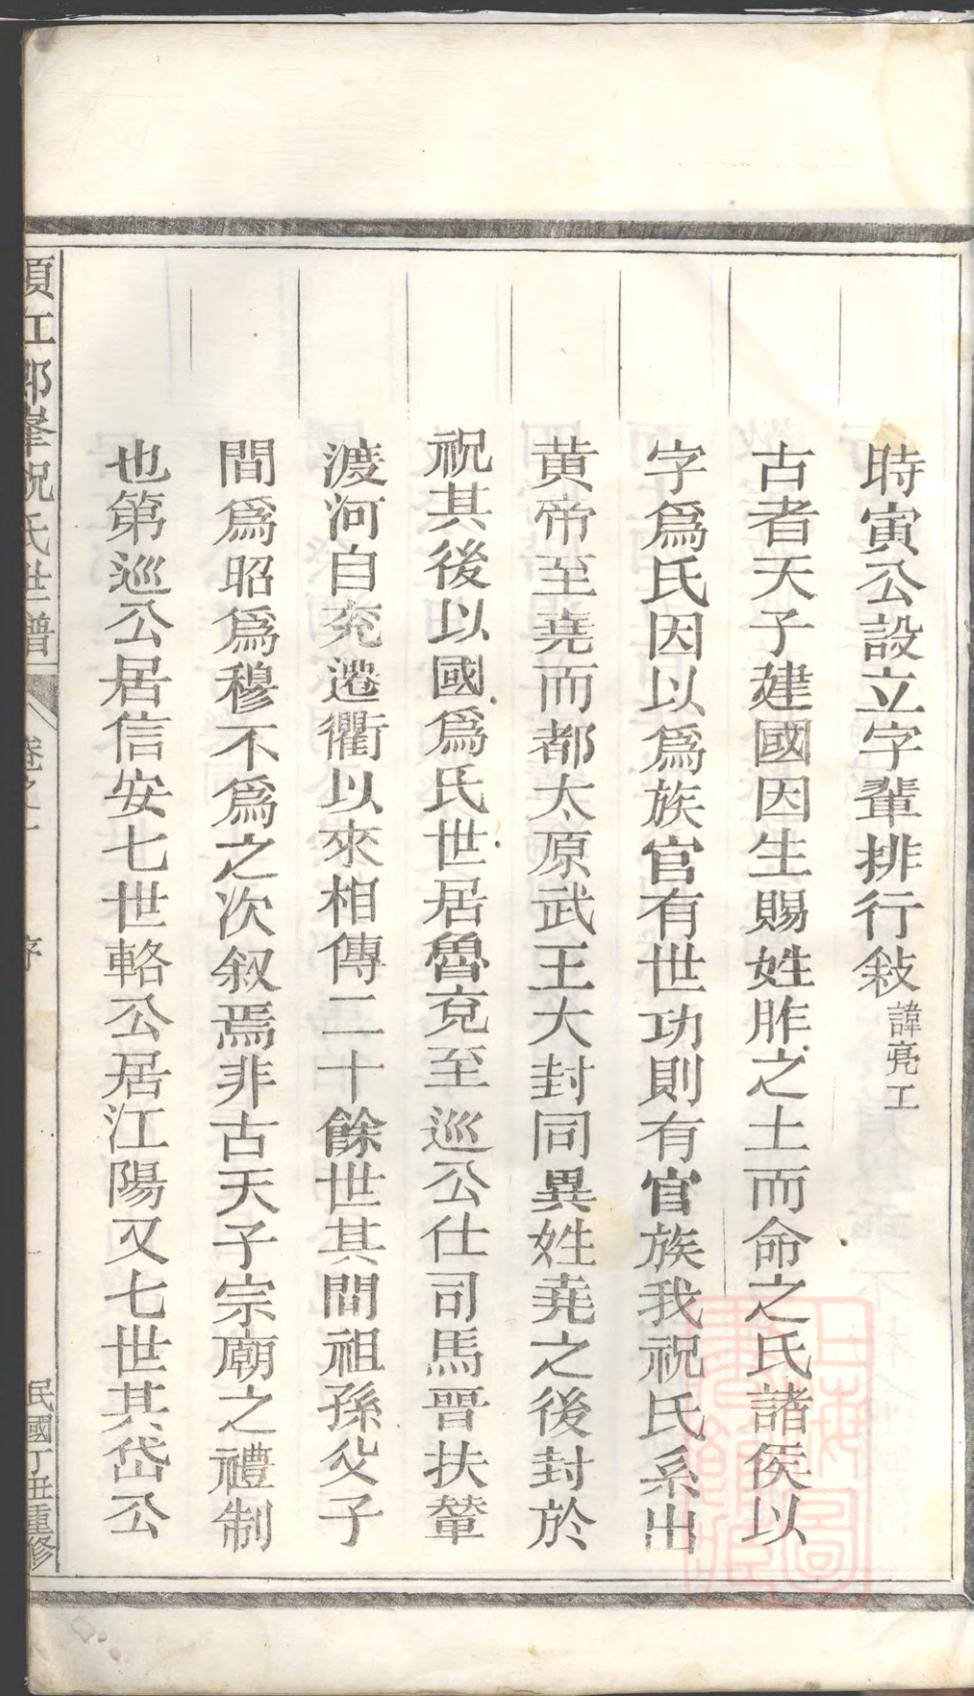 時寅公設立字輩排行敍諱亮工
古者天子建國因生賜姓胙之土而命之氏諸侯以
字爲氏因以爲族官有世功則有官族我祝氏系出
黃帝至堯而都太原武王大封同異姓堯之後封於
祝其後以國爲氏世居魯兗至巡公仕司馬晋扶輦
渡河自兖遷衢以來相傳二十餘世其間祖孫父子
間爲昭爲穆不爲之次叙焉非古天子宗廟之禮制
也第巡公居信安七世輅公居江陽又七世其岱公
須江郎峯祝氏世譜 卷之一 序 民國丁丑重修
上海圖書館藏